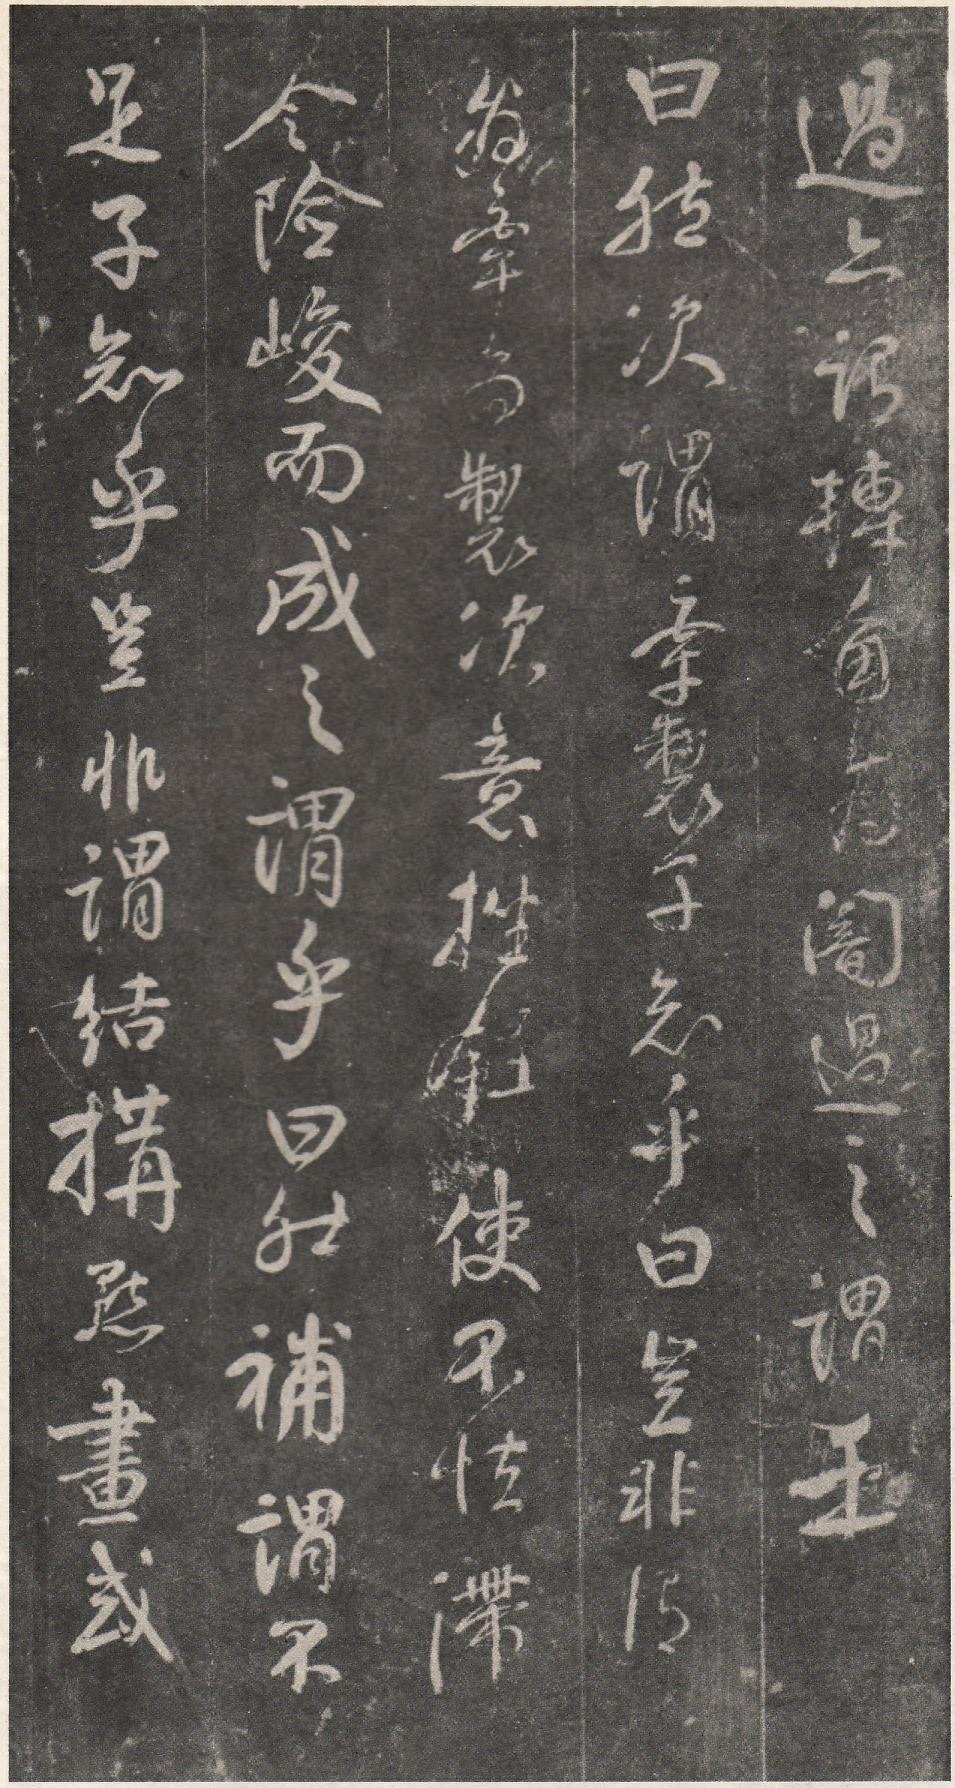 過謂轉角為闇過之謂
曰然决謂牽製子知乎曰豈非謂
為牽為製决意挫鋒使不怯滯
令險峻而成之謂乎曰然補謂不
足子知乎豈非謂結構點畫或